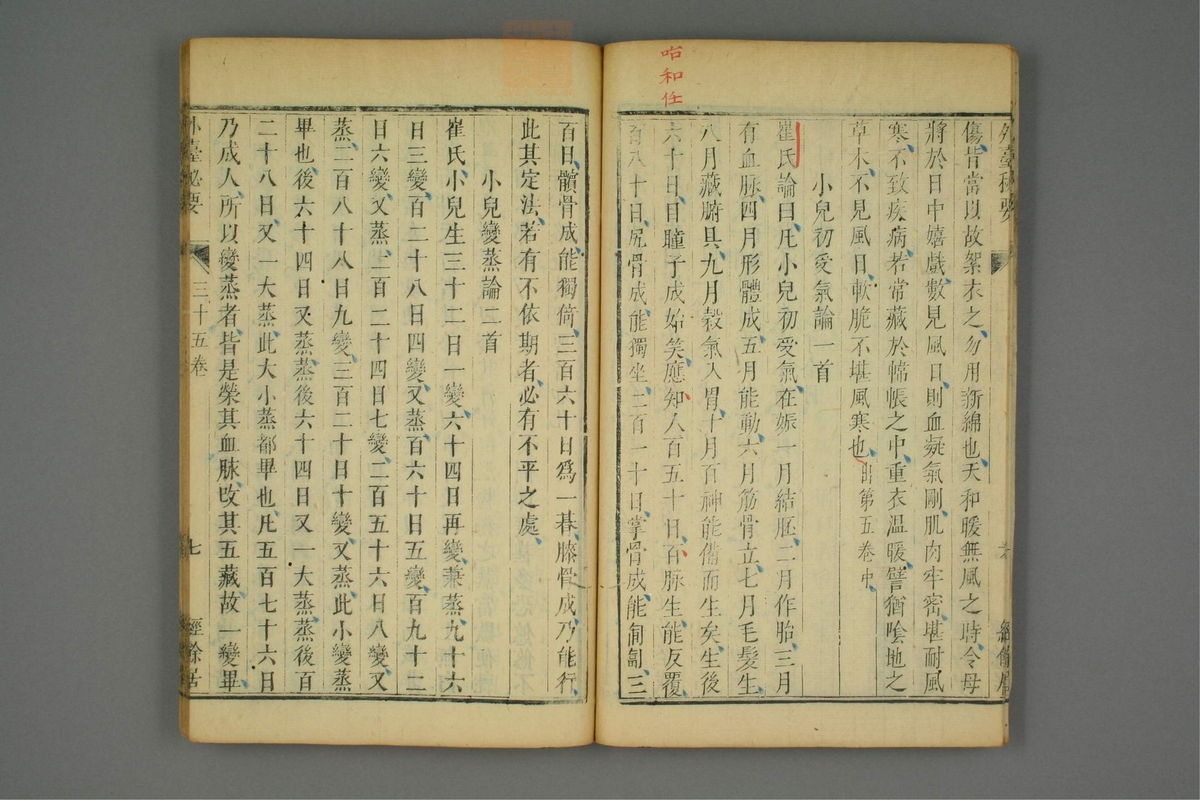 咕和任
外臺秘要
經餘居
傷皆當以故絮衣之勿用新綿也天和暖無風之時令母
將於日中嬉戲數見風日則血凝氣剛肌肉牢密堪耐風
寒不致疾病若常藏於幃帳之中重衣溫暖譬猶陰地之
草木不見風日軟脆不堪風寒也出第五卷中
小兒初受氣論一首
崔氏論曰凡小兒初受氣在娠一月結胚二月作胎三月
有血脉四月形體成五月能動六月筋骨立七月毛髮生
八月藏腑具九月穀氣入胃十月百神能備而生矣生後
六十日目瞳子成始笑應知人百五十日百脉生能反覆
百八十日尻骨成能獨坐二百一十日掌骨成能匍匐三
百日髕骨成能獨倚三百六十日爲一朞膝骨成乃能行
此其定法若有不依期者必有不平之處
小兒變蒸論二首
崔氏小兒生三十二日一變六十四日再變兼蒸九十六
日三變百二十八日四變又蒸百六十日五變百九十二
日六變又蒸二百二十四日七變二百五十六日八變又
蒸二百八十八日九變三百二十日十變又蒸此小變蒸
畢也後六十四日又蒸蒸後六十四日又一大蒸蒸後百
二十八日又一大蒸此大小蒸都畢也凡五百七十六日
乃成人所以變蒸者皆是榮其血脉攺其五藏故一變畢
外臺秘要 三十五卷 七 經餘居